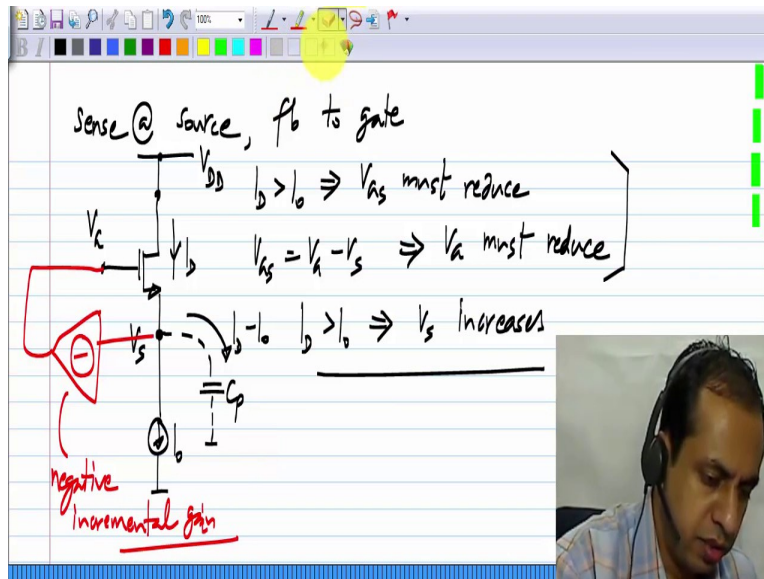 100%
B I
Sense @ source, fb to gate
VDD
ID > I0 ⇒ VGS must reduce
VG
ID
VGS = VG - VS ⇒ VG must reduce
VS
ID - I0
ID > I0 ⇒ VS increases
−
Cp
I0
negative
incremental gain